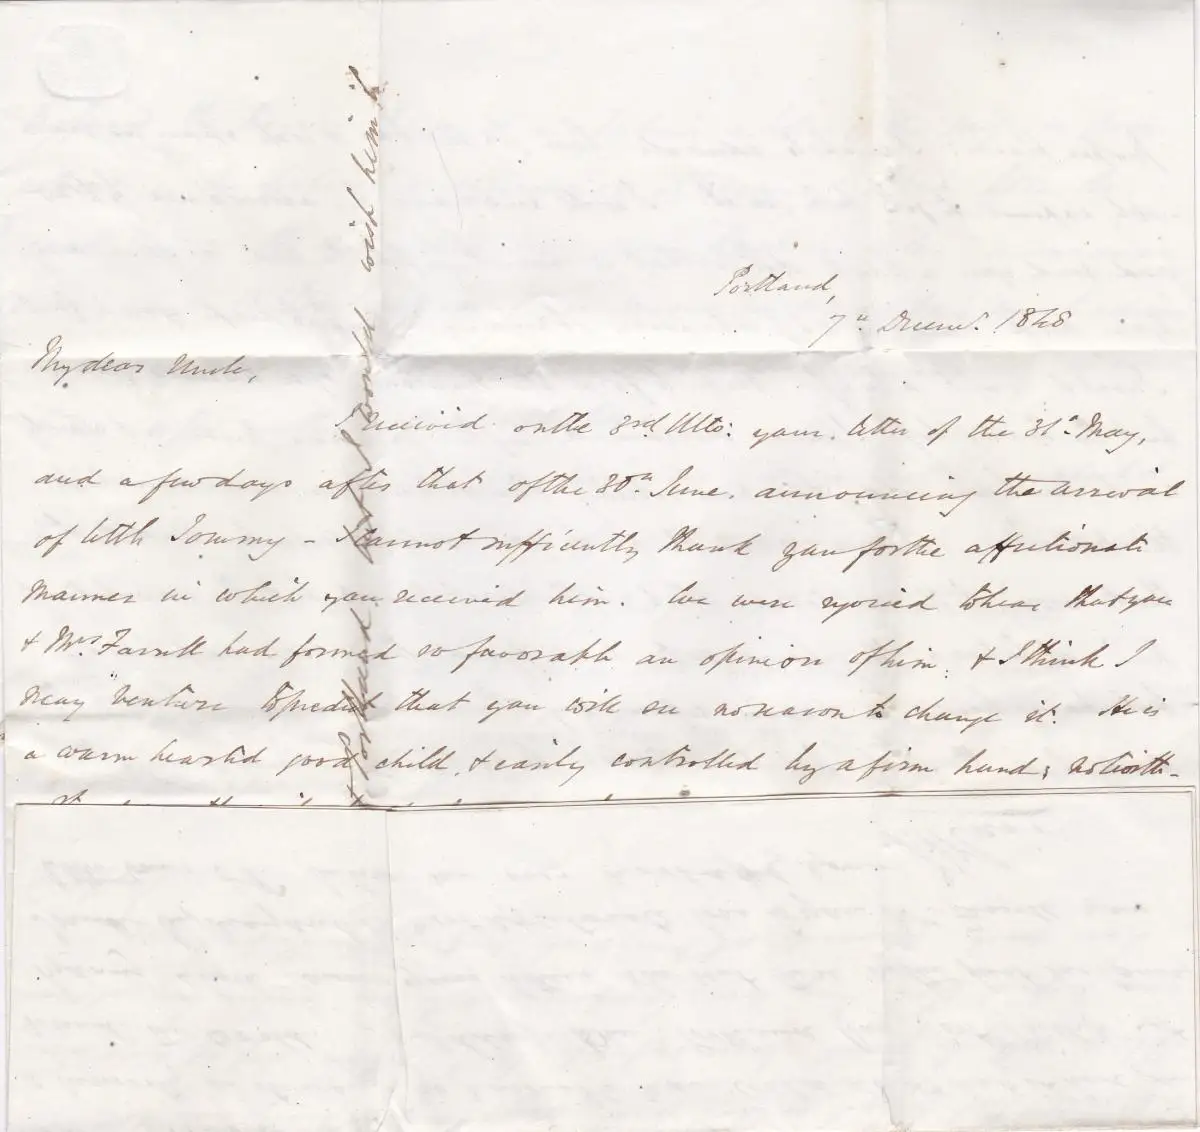 Portland,
7th Decemr. 1848
My dear Uncle,
I received on the 3rd Ulto: your letter of the 31st May,
and a few days after that of the 30th June, announcing the arrival
of little Tommy – I cannot sufficiently thank you for the affectionate
manner in which you received him. We were rejoiced to hear that you
& Mrs. Farrell had formed so favorable an opinion of him. & I think I
may venture to predict that you will see no reason to change it. He is
a warm hearted good child, & easily controlled by a firm hand; notwith-
Portland not I would wish him